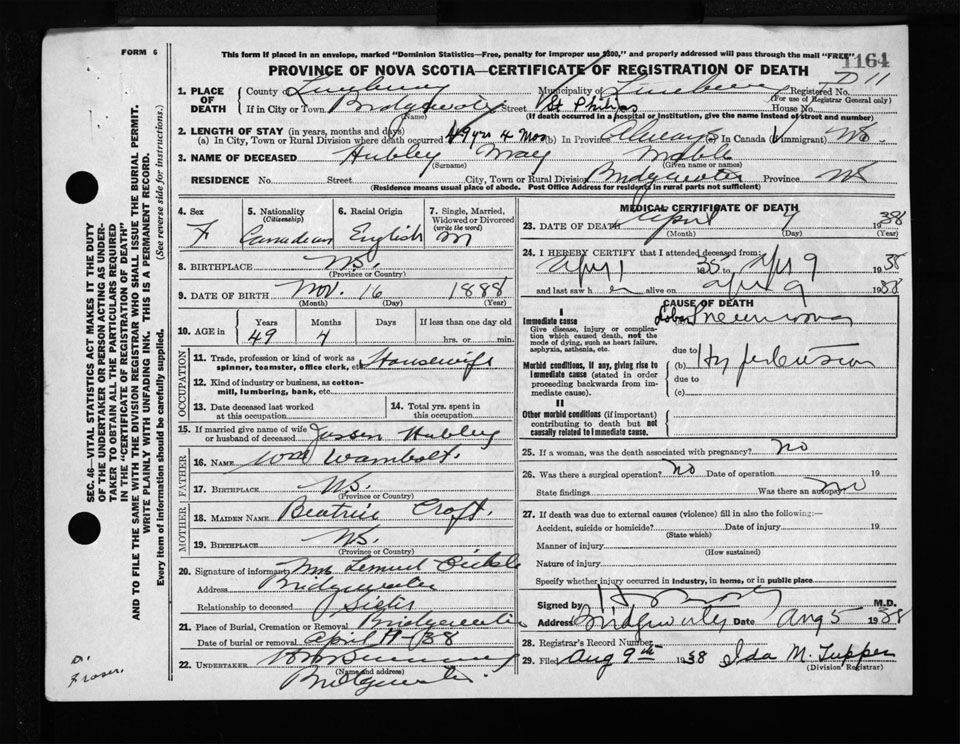 FORM 6
This form if placed in an envelope, marked "Dominion Statistics—Free, penalty for improper use $300," and properly addressed will pass through the mail "FREE"
1164
PROVINCE OF NOVA SCOTIA—CERTIFICATE OF REGISTRATION OF DEATH
1. PLACE OF DEATH
County of Lunenburg Registered No. D 11
(For use of Registrar General only)
If in City or Town Bridgewater Street St Philips House No.
(Name) (If death occurred in a hospital or institution, give the name instead of street and number)
2. LENGTH OF STAY (in years, months and days)
(a) In City, Town or Rural Division where death occurred 49 yrs 4 Mos (b) In Province Always (c) In Canada (If immigrant)
3. NAME OF DECEASED Hubley May Mable
(Surname) (Given name or names)
RESIDENCE No. Street City, Town or Rural Division Bridgewater Province NS
(Residence means usual place of abode. Post Office Address for residents in rural parts not sufficient)
4. Sex F
5. Nationality (Citizenship) Canadian
6. Racial Origin English
7. Single, Married, Widowed or Divorced (write the word) M
8. BIRTHPLACE N.S.
(Province or Country)
9. DATE OF BIRTH Nov. 16 1888
(Month) (Day) (Year)
10. AGE in Years Months Days If less than one day old
49 4 hrs. or min.
OCCUPATION
11. Trade, profession or kind of work as spinner, teamster, office clerk, etc. Housewife
12. Kind of industry or business, as cotton-mill, lumbering, bank, etc.
13. Date deceased last worked at this occupation
14. Total yrs. spent in this occupation
15. If married give name of wife or husband of deceased Hubley
FATHER
16. NAME Wambolt.
17. BIRTHPLACE N.S.
(Province or Country)
MOTHER
18. MAIDEN NAME Beatrice Croft.
19. BIRTHPLACE N.S.
(Province or Country)
20. Signature of informant Mrs Lemuel
Address Bridgewater
Relationship to deceased Sister
21. Place of Burial, Cremation or Removal Bridgewater
Date of burial or removal April 11-/38
22. UNDERTAKER
(Name and address)
Bridgewater
MEDICAL CERTIFICATE OF DEATH
23. DATE OF DEATH April 9 1938
(Month) (Day) (Year)
24. I HEREBY CERTIFY that I attended deceased from:
Apr 1 to Apr 9 1938
and last saw her alive on Apr 9 1938
CAUSE OF DEATH
I
Immediate cause Lobar Pneumonia
Give disease, injury or complication which caused death, not the mode of dying, such as heart failure, asphyxia, asthenia, etc.
due to
Morbid conditions, if any, giving rise to immediate cause (stated in order proceeding backwards from immediate cause).
(b) Hypertension
due to
(c)
II
Other morbid conditions (if important) contributing to death but not causally related to immediate cause.
25. If a woman, was the death associated with pregnancy? no
26. Was there a surgical operation? no Date of operation 19
State findings Was there an autopsy? no
27. If death was due to external causes (violence) fill in also the following:—
Accident, suicide or homicide? Date of injury 19
(State which)
Manner of injury
(How sustained)
Nature of injury
Specify whether injury occurred in industry, in home, or in public place
Signed by M.D.
Address Bridgewater Date Aug 5 1938
28. Registrar's Record Number
29. Filed Aug 9th 1938 Ida M. Tupper
(Division Registrar)
SEC. 46—VITAL STATISTICS ACT MAKES IT THE DUTY
OF THE UNDERTAKER OR PERSON ACTING AS UNDER-
TAKER TO OBTAIN ALL THE PARTICULARS REQUIRED
IN THE "CERTIFICATE OF REGISTRATION OF DEATH"
AND TO FILE THE SAME WITH THE DIVISION REGISTRAR WHO SHALL ISSUE THE BURIAL PERMIT.
WRITE PLAINLY WITH UNFADING INK. THIS IS A PERMANENT RECORD.
Every item of information should be carefully supplied. (See reverse side for instructions.)
Dr. Fraser.